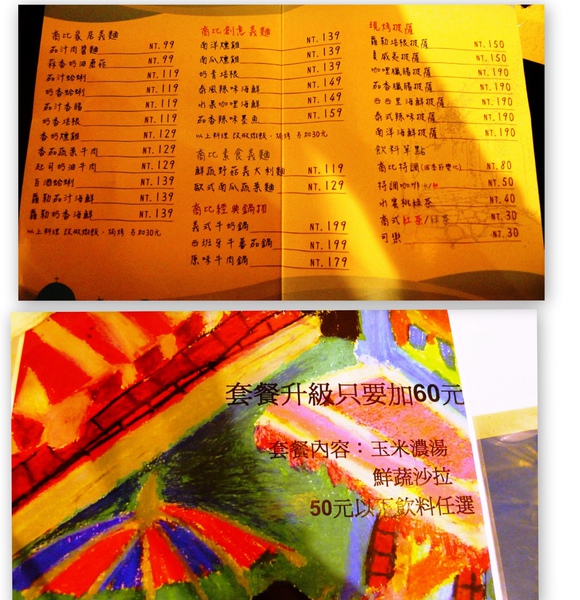 南比家居義麵
茄汁肉醬麵 NT. 99
蒜香奶油蘑菇 NT. 99
茄汁蛤蜊 NT. 119
奶香蛤蜊 NT. 119
茄汁香腸 NT. 119
奶香培根 NT. 119
香奶燻雞 NT. 129
香茄蔬菜牛肉 NT. 129
起司奶油牛肉 NT. 129
白酒蛤蜊 NT. 139
羅勒茄汁海鮮 NT. 139
羅勒奶香海鮮 NT. 139
以上料理 焗烤 另加30元
南比創意義麵
南洋燻雞 NT. 139
南瓜燻雞 NT. 139
奶香培根 NT. 139
泰風辣味海鮮 NT. 149
水果咖哩海鮮 NT. 149
茄香辣味墨魚 NT. 159
以上料理 焗烤 另加30元
南比素食義麵
鮮蔬野菇義大利麵 NT. 119
歐式南瓜蔬菜麵 NT. 129
南比經典鍋類
義式牛奶鍋 NT. 199
西班牙蕃茄鍋 NT. 199
原味牛肉鍋 NT. 179
現烤披薩
羅勒培根披薩 NT. 150
夏威夷披薩 NT. 150
咖哩燻雞披薩 NT. 190
茄香燻雞披薩 NT. 190
西西里海鮮披薩 NT. 190
泰式辣味披薩 NT. 190
南洋海鮮披薩 NT. 190
飲料單點
南比特調 NT. 80
特調咖啡 NT. 50
水果風味茶 NT. 40
南式紅茶/綠茶 NT. 30
可樂 NT. 30
套餐升級只要加60元
套餐內容：玉米濃湯
鮮蔬沙拉
50元以下飲料任選